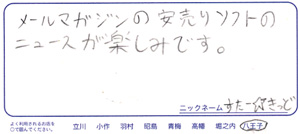 メールマガジンの安売りソフトの
ニュースが楽しみです。
ニックネーム すたー☆きっど
よく利用されるお店を
○で囲んでください。 立川 小作 羽村 昭島 青梅 高幡 堀之内 八王子